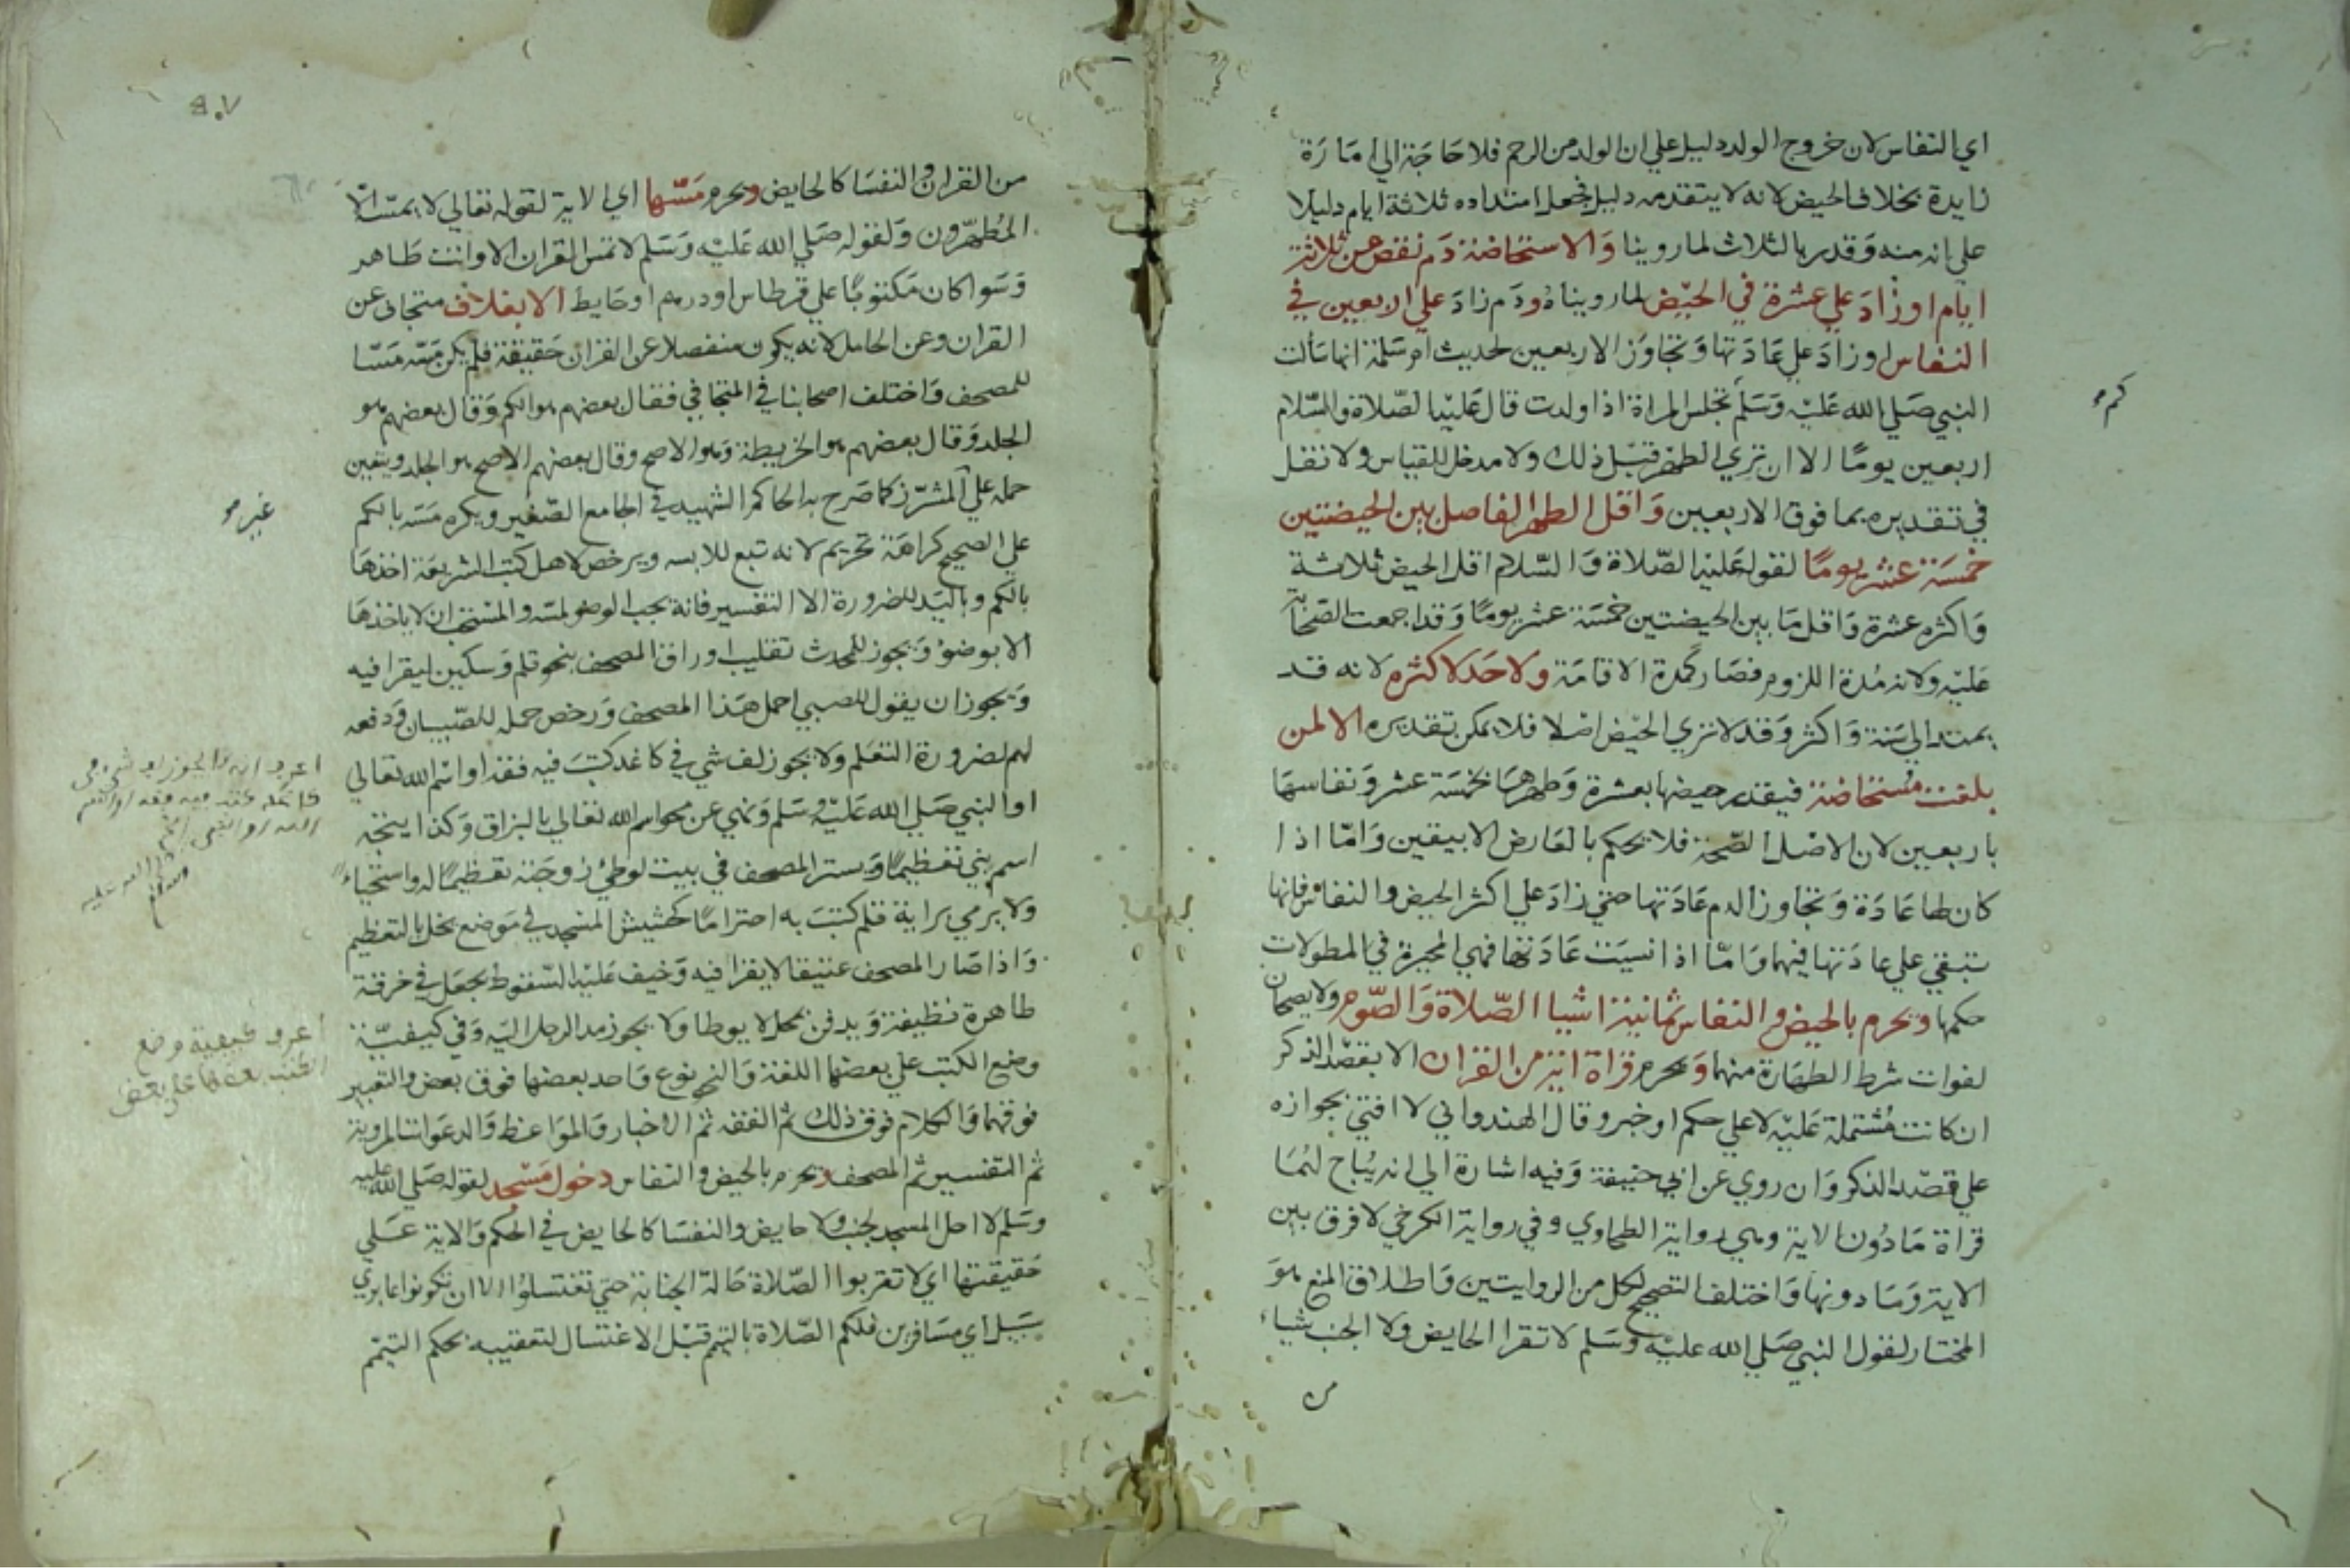 اي النفاس لان خروج الولد دليل علي ان الولد من الرحم فلا حاجة الي امارة
زايدة بخلاف الحيض لانه لا يتقدمه دليل فجعل امتداده ثلاثة ايام دليلا
علي انه منه وقدر بالثلاث لما روينا والاستحاضة دم نقص عن ثلاثة
ايام او زاد علي عشرة في الحيض لما رويناه ودم زاد علي اربعين في
النفاس او زاد علي عادتها وتجاوز الاربعين لحديث ام سلمة انها سألت
النبي صلي الله عليه وسلم تجلس المراة اذا ولدت قال عليه الصلاة والسلام
كم
اربعين يوما الا ان تري الطهر قبل ذلك ولا مدخل للقياس ولا نقل
في تقديره بما فوق الاربعين واقل الطهر الفاصل بين الحيضتين
خمسة عشر يوما لقوله عليه الصلاة والسلام اقل الحيض ثلاثة
واكثره عشرة واقل ما بين الحيضتين خمسة عشر يوما وقد اجمعت الصحابة
عليه ولانه مدة اللزوم فصار كمدة الاقامة ولا حد لاكثره لانه قد
يمتد الي سنة واكثر وقد لا تري الحيض اصلا فلا يمكن تقديره الا لمن
بلغت مستحاضة فيقدر حيضها بعشرة وطهرها بخمسة عشر ونفاسها
باربعين لان الاصل الصحة فلا يحكم بالعارض الا بيقين واما اذا
كان لها عادة وتجاوز الدم عادتها حتي زاد علي اكثر الحيض والنفاس فانها
تبقي علي عادتها فيهما واما اذا نسيت عادتها فهي المحيرة في المطولات
حكمها ويحرم بالحيض والنفاس ثمانية اشيا الصلاة والصوم ولا يصحان
لفوات شرط الطهارة منهما ويحرم قراة اية من القران الا بقصد الذكر
ان كانت مشتملة عليه لا علي حكم او خبر وقال الهندواني لا افتي بجوازه
علي قصد الذكر وان روي عن ابي حنيفة وفيه اشارة الي انه يباح لهما
قراة ما دون الاية وهي رواية الطحاوي وفي رواية الكرخي لا فرق بين
الاية وما دونها واختلف التصحيح لكل من الروايتين واطلاق المنع هو
المختار لقول النبي صلي الله عليه وسلم لا تقرا الحايض ولا الجنب شياء
من
من القران والنفسا كالحايض ويحرم مسها اي الاية لقوله تعالي لا يمسه الا
المطهرون ولقوله صلي الله عليه وسلم لا تمس القران الا وانت طاهر
وسوا كان مكتوبا علي قرطاس او درهم او حايط الا بغلاف متجافي عن
القران وعن الحامل لانه يكون منفصلا عن القران حقيقة فلم يكن مسه مسا
للمصحف واختلف اصحابنا في المتجافي فقال بعضهم هو الكم وقال بعضهم هو
الجلد وقال بعضهم هو الخريطة وهو الاصح وقال بعضهم الاصح هو الجلد ويتعين
حمله علي المشرز كما صرح به الحاكم الشهيد في الجامع الصغير ويكره مسه بالكم
غير
علي الصحيح كراهة تحريم لانه تبع للابسه ويرخص لاهل كتب الشريعة اخذها
بالكم وباليد للضرورة الا التفسير فانه يجب الوضو لمسه والمستحب ان لا ياخذها
الا بوضوء ويجوز للمحدث تقليب اوراق المصحف بنحو قلم وسكين ليقرا فيه
ويجوز ان يقول للصبي احمل هذا المصحف ورخص حمله للصبيان ودفعه
لهم لضرورة التعلم ولا يجوز لف شي في كاغد كتب فيه فقه او اسم الله تعالي
او النبي صلي الله عليه وسلم ونهي عن محو اسم الله تعالي بالبزاق وكذا
اسم نبي تعظيما ويستر المصحف في بيت لوطئ زوجته تعظيما له واستحياء
ولا يرمي براية قلم كتب به احتراما كحشيش المسجد في موضع يخل بالتعظيم
واذا صار المصحف عتيقا لا يقرا فيه وخيف عليه السقوط يجعل في خرقة
طاهرة نظيفة ويدفن بمحل لا يوطا ولا يجوز مد الرجل اليه وفي كيفية
وضع الكتب علي بعضها اللغة والنحو نوع واحد بعضها فوق بعض والتعبير
فوقهما والكلام فوق ذلك ثم الفقه ثم الاخبار والمواعظ والدعوات المروية
ثم التفسير ثم المصحف ويحرم بالحيض والنفاس دخول مسجد لقوله صلي الله عليه
وسلم لا احل المسجد لجنب ولا حايض والنفسا كالحايض في الحكم والاية علي
حقيقتها اي لا تقربوا الصلاة حالة الجنابة حتي تغتسلوا الا ان تكونوا عابري
سبيل اي مسافرين فلكم الصلاة بالتيمم قبل الاغتسال لتعقيبه بحكم التيمم
اعرف انه لا يجوز لف شي في
كاغد كتب فيه فقه او اسم
الله او النبي
صلى الله عليه
وسلم
اعرف كيفية وضع
الكتب بعضها على بعض